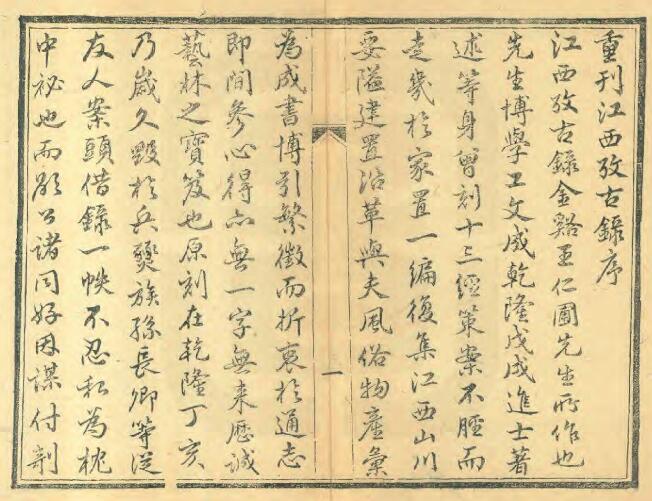 重刊江西攷古錄序
江西攷古錄金谿王仁圃先生所作也
先生博學工文成乾隆戊戌進士著
述等身曾刻十三經策案不脛而
走幾於家置一編復集江西山川
要隘建置沿革與夫風俗物產彙
一
為成書博引繁徵而折衷於通志
即間參心得亦無一字無来歷誠
藝林之寶笈也原刻在乾隆丁亥
乃嵗久毀於兵燹族孫長卿等從
友人案頭借錄一帙不忍私為枕
中祕也而願公諸同好因謀付剞